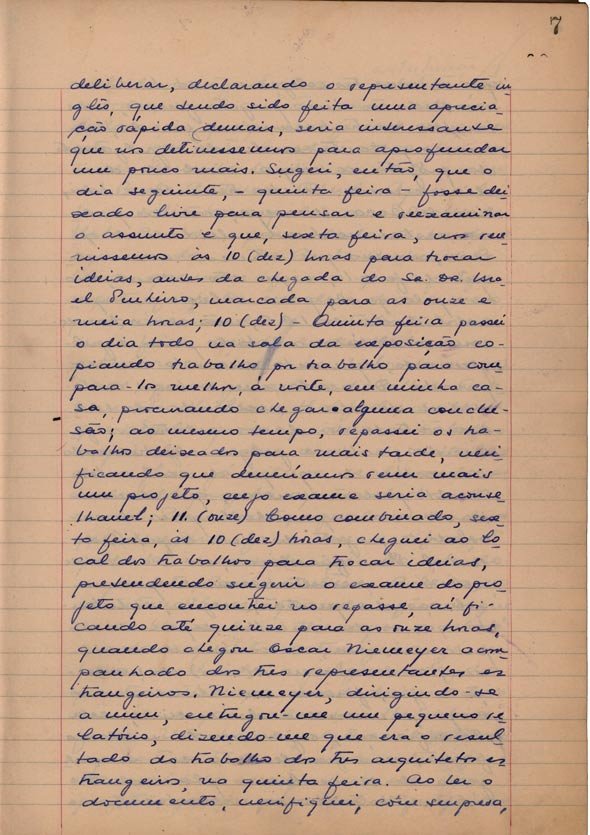 7
deliberar, declarando o representante in-
glês, que sendo sido feita uma aprecia-
ção rápida demais, seria interessante
que nos detivessemos para aprofundar
um pouco mais. Sugeri, então, que o
dia seguinte, - quinta feira - fosse dei-
xado livre para pensar e reexaminar
o assunto e que, sexta feira, nos reu-
nissemos às 10 (dez) horas para trocar
ideias, antes da chegada do Sr. Dr. Isra-
el Pinheiro, marcada para as onze e
meia horas; 10 (dez) - Quinta feira passei
o dia todo na sala da exposição co-
piando trabalho por trabalho para com
para-los melhor, à noite, em minha ca-
sa, procurando chegar a alguma conclu-
são; ao mesmo tempo, repassei os tra-
balhos deixados para mais tarde, veri-
ficando que deveriamos rever mais
um projeto, cujo exame seria aconse-
lhavel; 11. (onze) Como combinado, sex-
ta feira, às 10 (dez) horas, cheguei ao lo-
cal dos trabalhos para trocar ideias,
pretendendo sugerir o exame do pro-
jeto que encontrei no repasse, aí fi-
cando até quinze para as onze horas,
quando chegou Oscar Niemeyer acom-
panhado dos tres representantes es-
trangeiros. Niemeyer, dirigindo-se
a mim, entregou-me um pequeno re-
latório, dizendo-me que era o resul-
tado do trabalho dos tres arquitetos es-
trangeiros, na quinta feira. Ao ler o
documento, verifiquei, com surpresa,